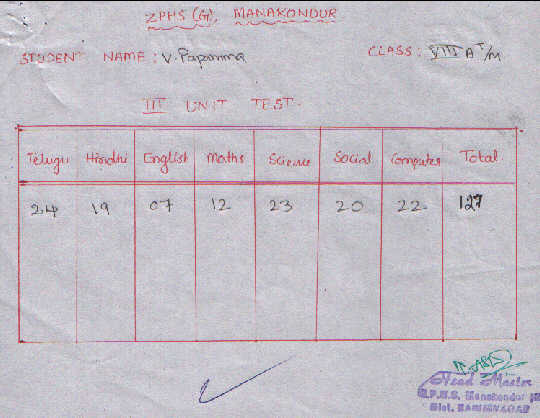 ZPHS (G), MANAKONDUR
STUDENT NAME : V. Papamma CLASS : VIII A T/M
III UNIT TEST.
Telugu Hindhi English Maths Science Social Computer Total
24 19 07 12 23 20 22 127
Head Master
Z.P.H.S. Manakondur
Dist. KARIMNAGAR